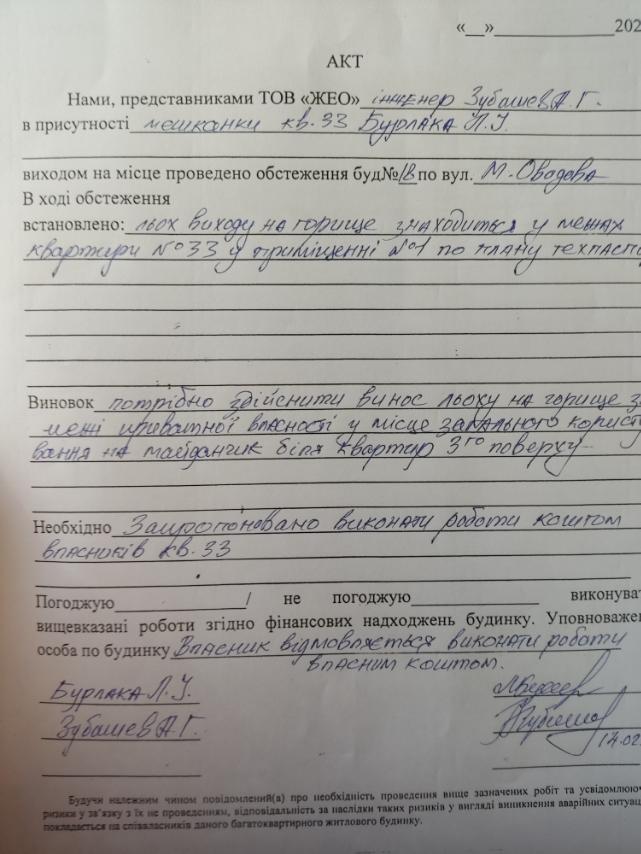 «__»______________202
АКТ
Нами, представниками ТОВ «ЖЕО» інженер Зубашев А.Г.
в присутності мешканки кв.33 Бурлака Л.У.
виходом на місце проведено обстеження буд№18 по вул. М.Оводова
В ході обстеження
встановлено: льох виходу на горище знаходиться у межах
квартири №33 у приміщенні №1 по плану техпасп
Виновок потрібно здійснити винос льоху на горище з
межі приватної власності у місце загального корист
вання на майданчик біля квартир 3го поверху
Необхідно Запропоновано виконати роботи коштом
власників кв.33
Погоджую______________/ не погоджую______________ виконуват
вищевказані роботи згідно фінансових надходжень будинку. Уповноважен
особа по будинку Власник відмовляється виконати роботи
власним коштом.
Бурлака Л.У.
Зубашев А.Г.
14.02
Будучи належним чином повідомлений(а) про необхідність проведення вище зазначених робіт та усвідомлююч
ризики у зв'язку з їх не проведенням, відповідальність за наслідки таких ризиків у вигляді виникнення аварійних ситуац
покладається на співвласників даного багатоквартирного житлового будинку.